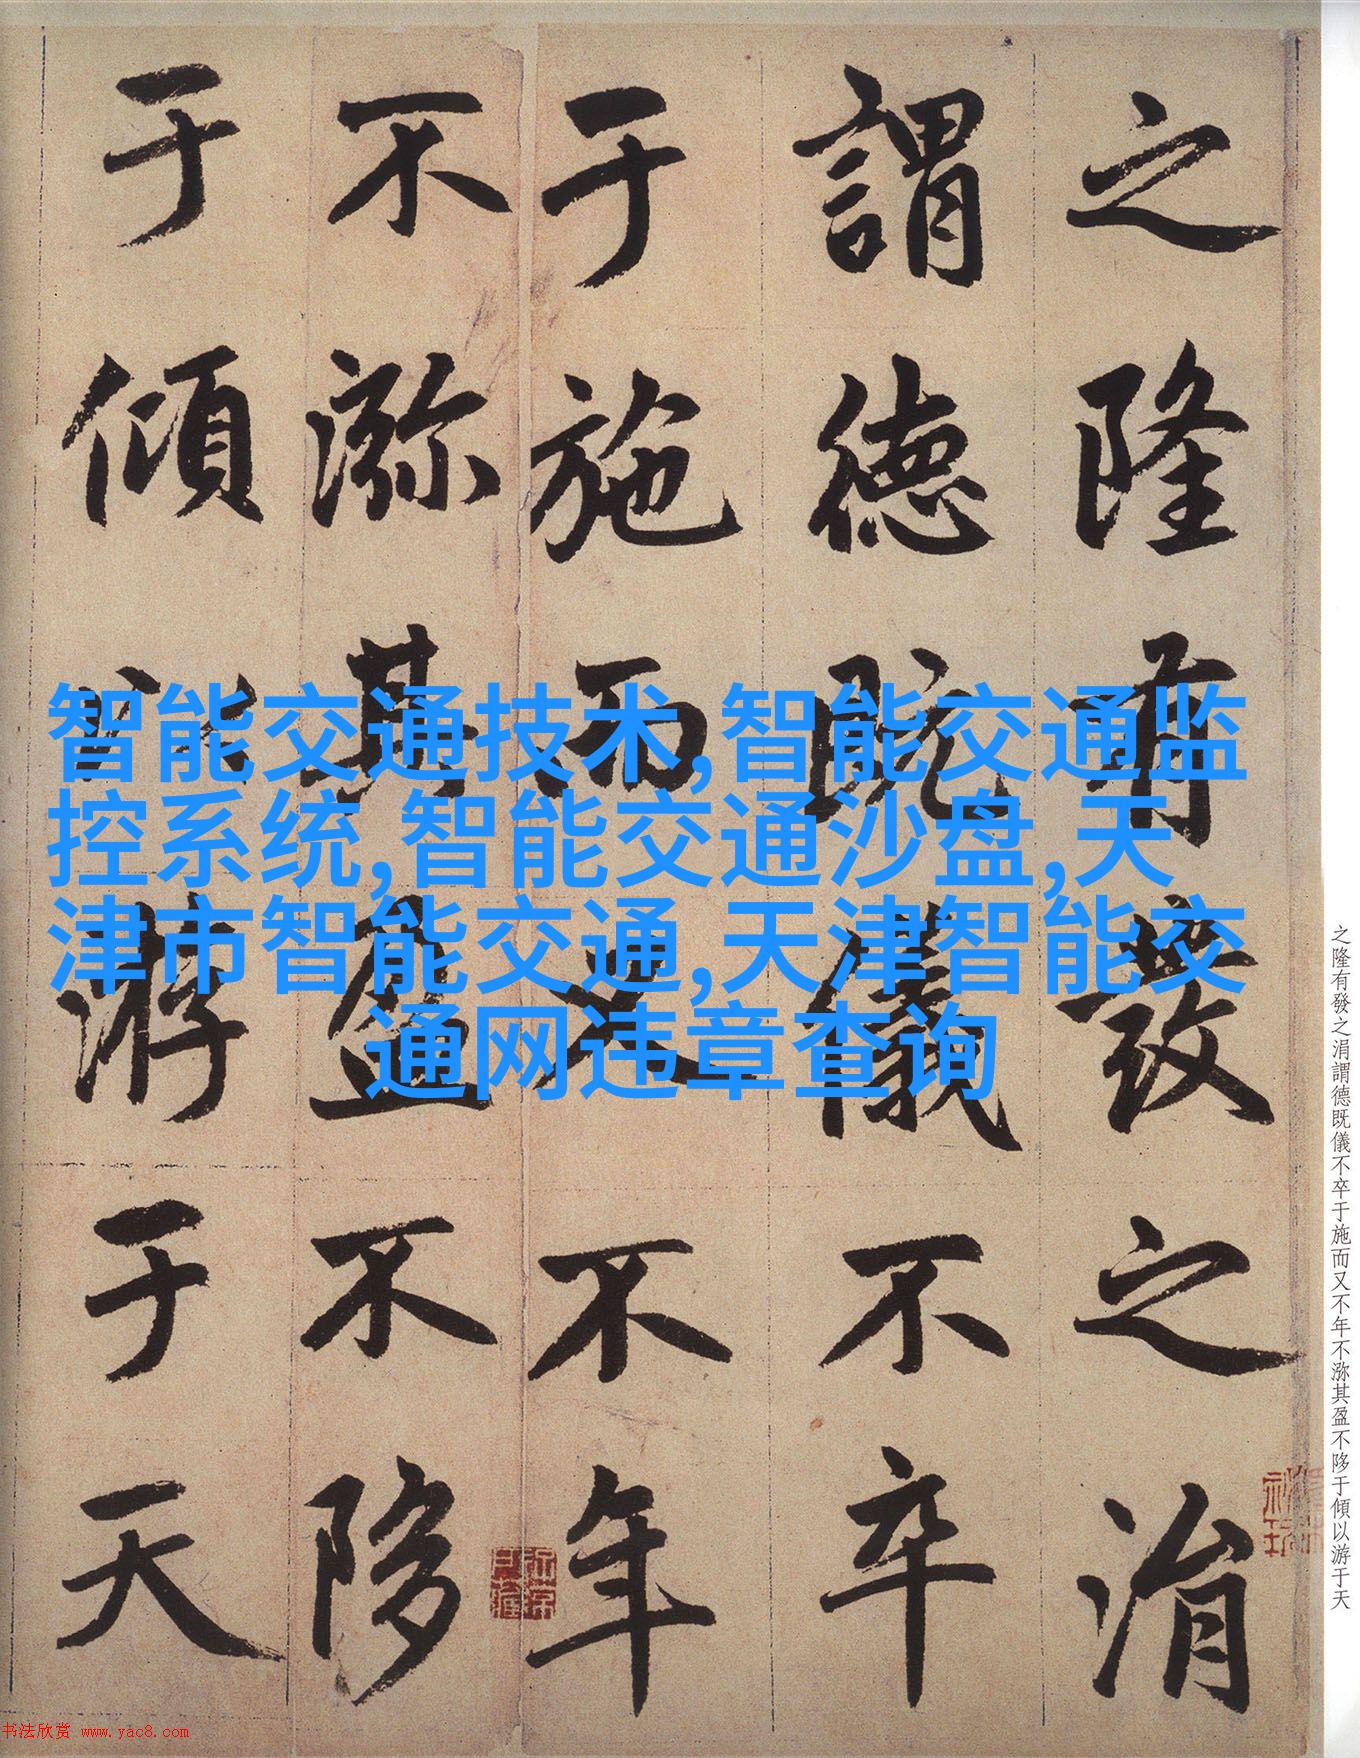 之隆有發之涓
謂德既儀不卒
于施而又不年
不沵其盈不陊
于傾以游于天
智能交通技术,智能交通监
控系统,智能交通沙盘,天
津市智能交通,天津智能交
通网违章查询
之隆有發之涓謂德既儀不卒于施而又不年不沵其盈不陊于傾以游于天
书法欣赏 www.yac8.com